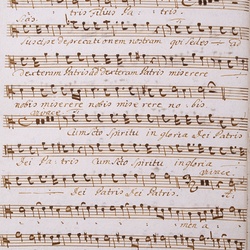 tris Filius Pa - tris.
Suscipe deprecationem nostram qui sedes
dexteram Patris ad dexteram Patris miserere
nobis miserere nobis mise rere no - bis.
Cum Scto Spiritu in gloria Dei Patris
dei Pa - tris Cum Scto Spiritu in gloria
dei Patris Dei Patris.
men a